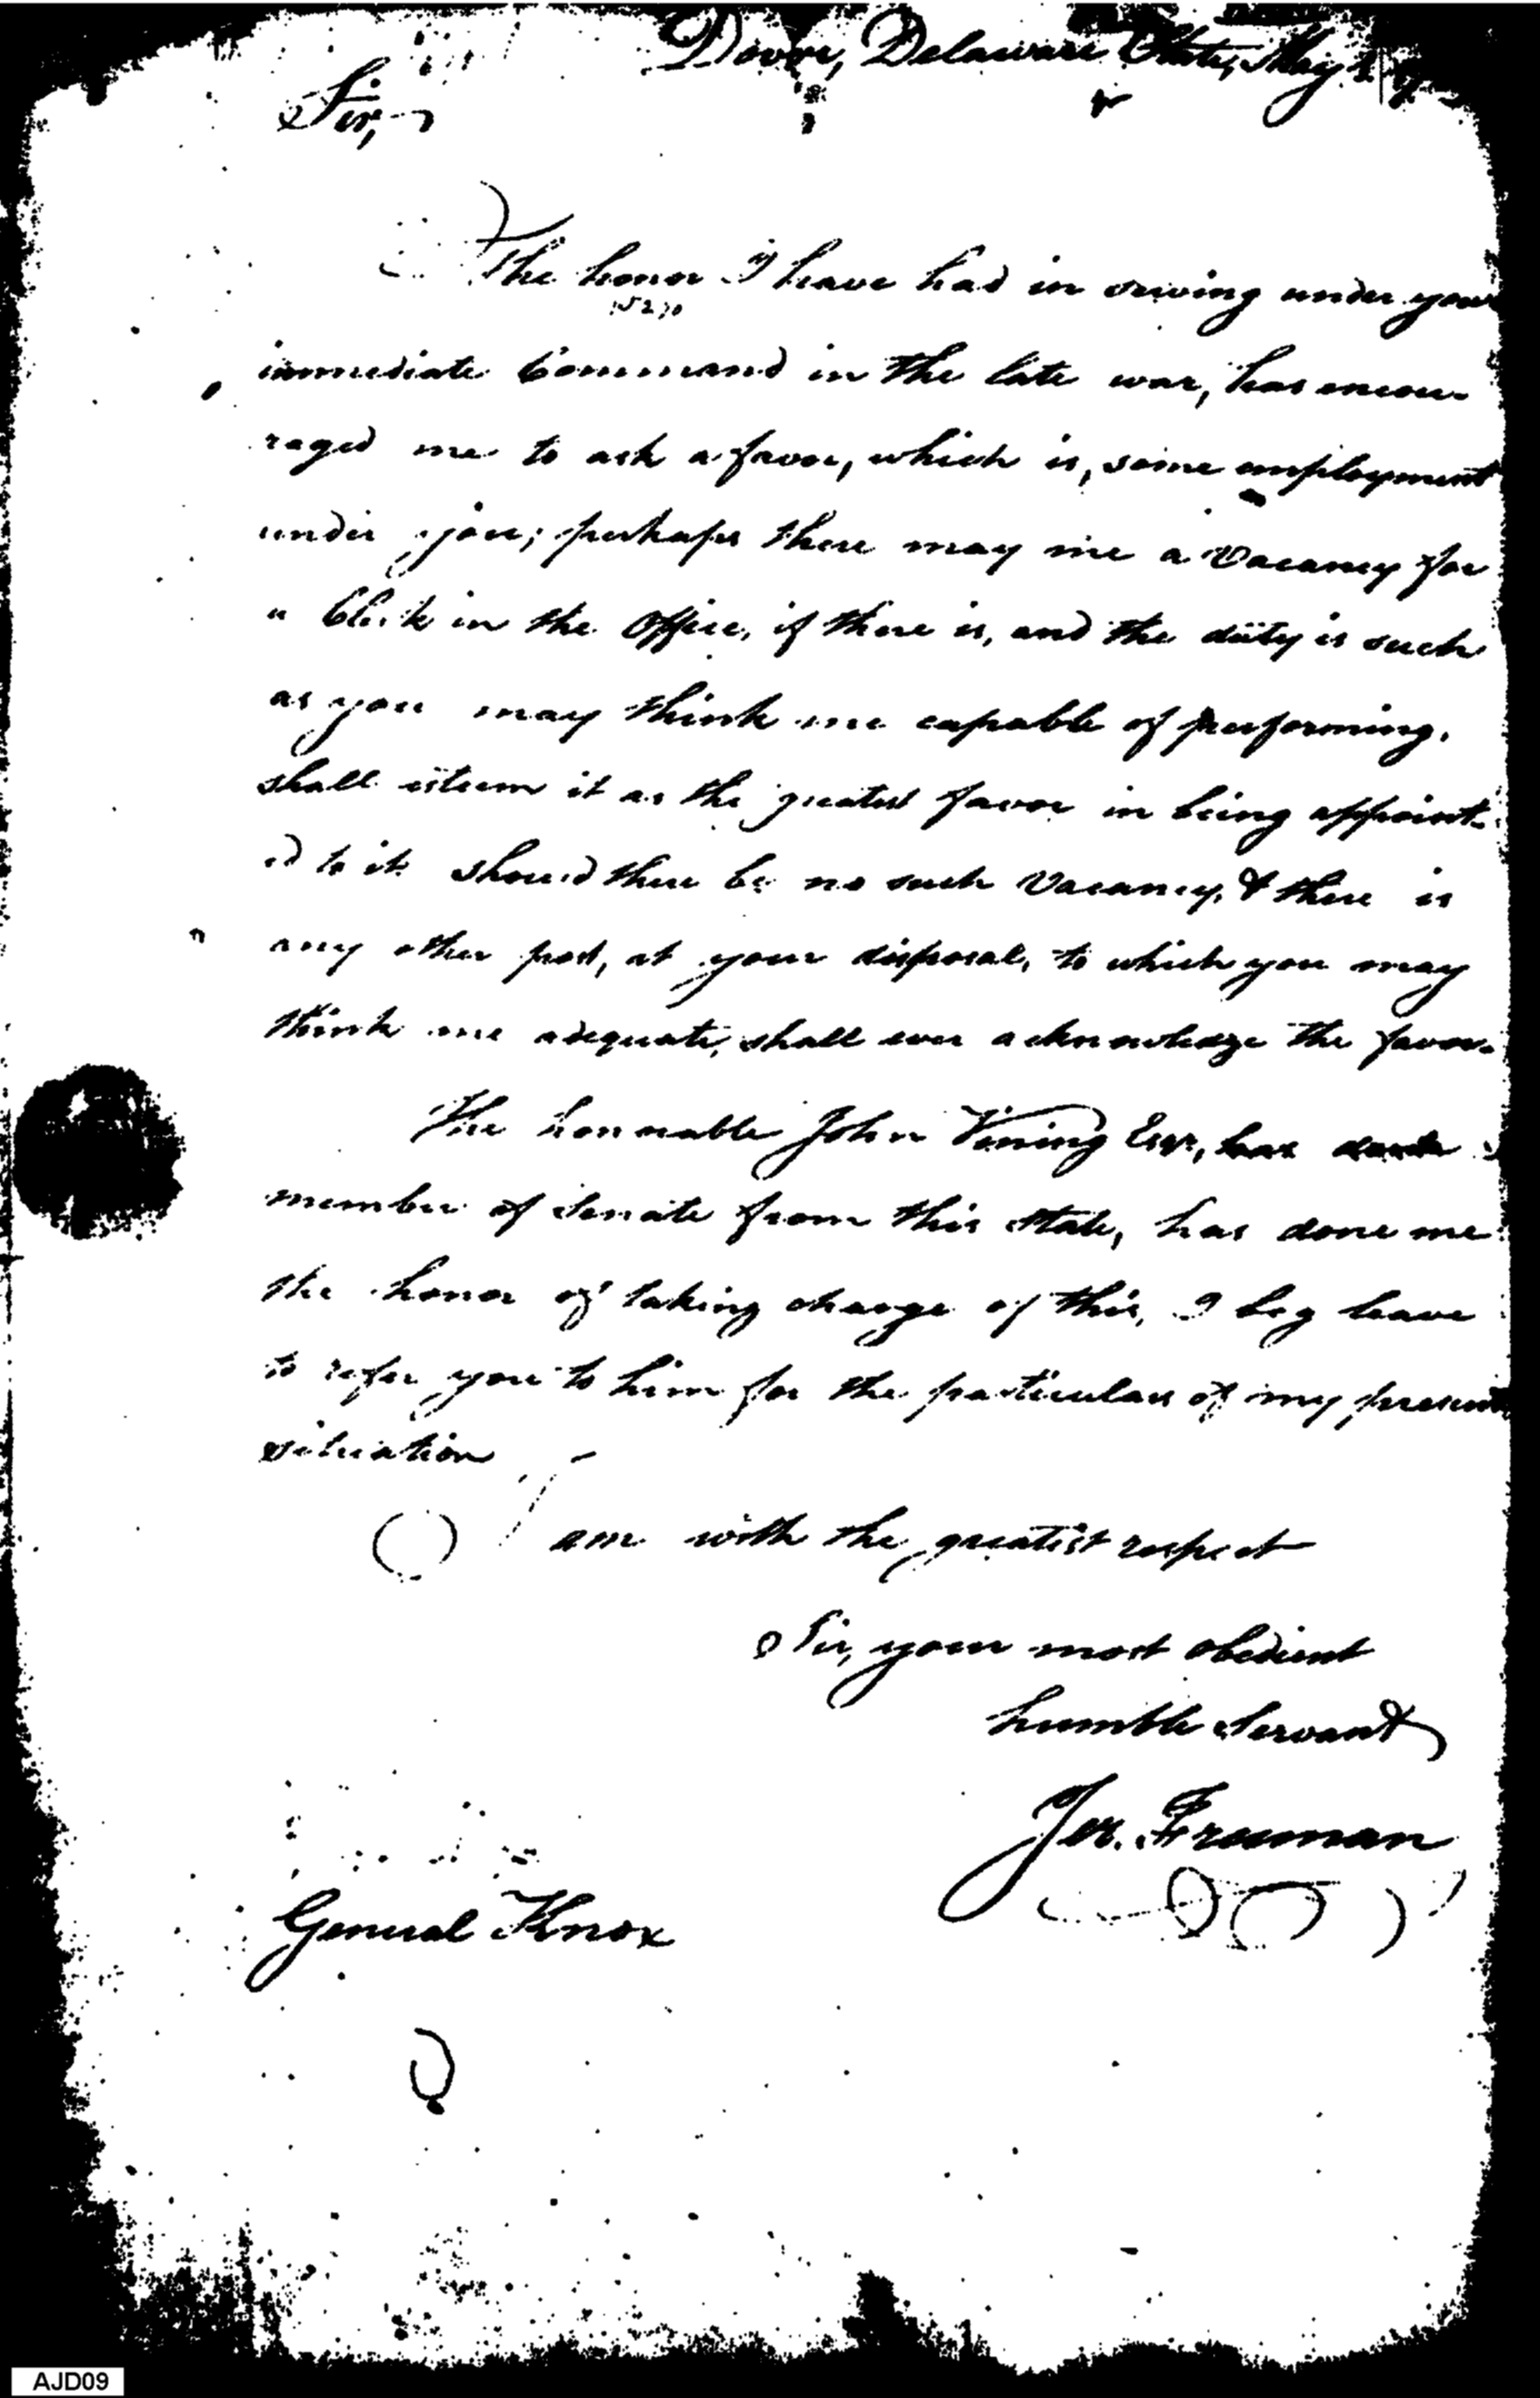 Dover, Delaware State, May
Sir,
The honor I have had in serving under your
immediate Command in the late war, has encou-
raged me to ask a favor, which is, some employment
under you; perhaps there may me a Vacancy for
a Clerk in the Office, if there is, and the duty is such
as you may think me capable of performing,
shall esteem it as the greatest favor in being appoint-
ed to it. Should there be no such Vacancy, & there is
any other post, at your disposal, to which you may
think me adequate, shall ever acknowledge the favor.
The honorable John Vining Esqr,
member of Senate from this State, has done me
the honor of taking charge of this, I beg leave
to refer you to him for the particulars of my present
situation
I am with the greatest respect
Sir, your most obedient
humble Servant
Jer. Freeman
General Knox
AJD09